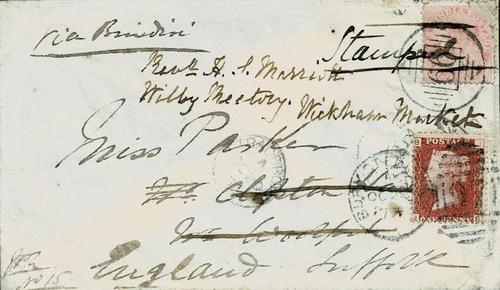 via Brindisi
Stamped
Revd H. S. Marriott
Wilby Rectory. Wickham Market
Miss Parker
Clopton
England Suffolk
POSTAGE
ONE PENNY
No 15